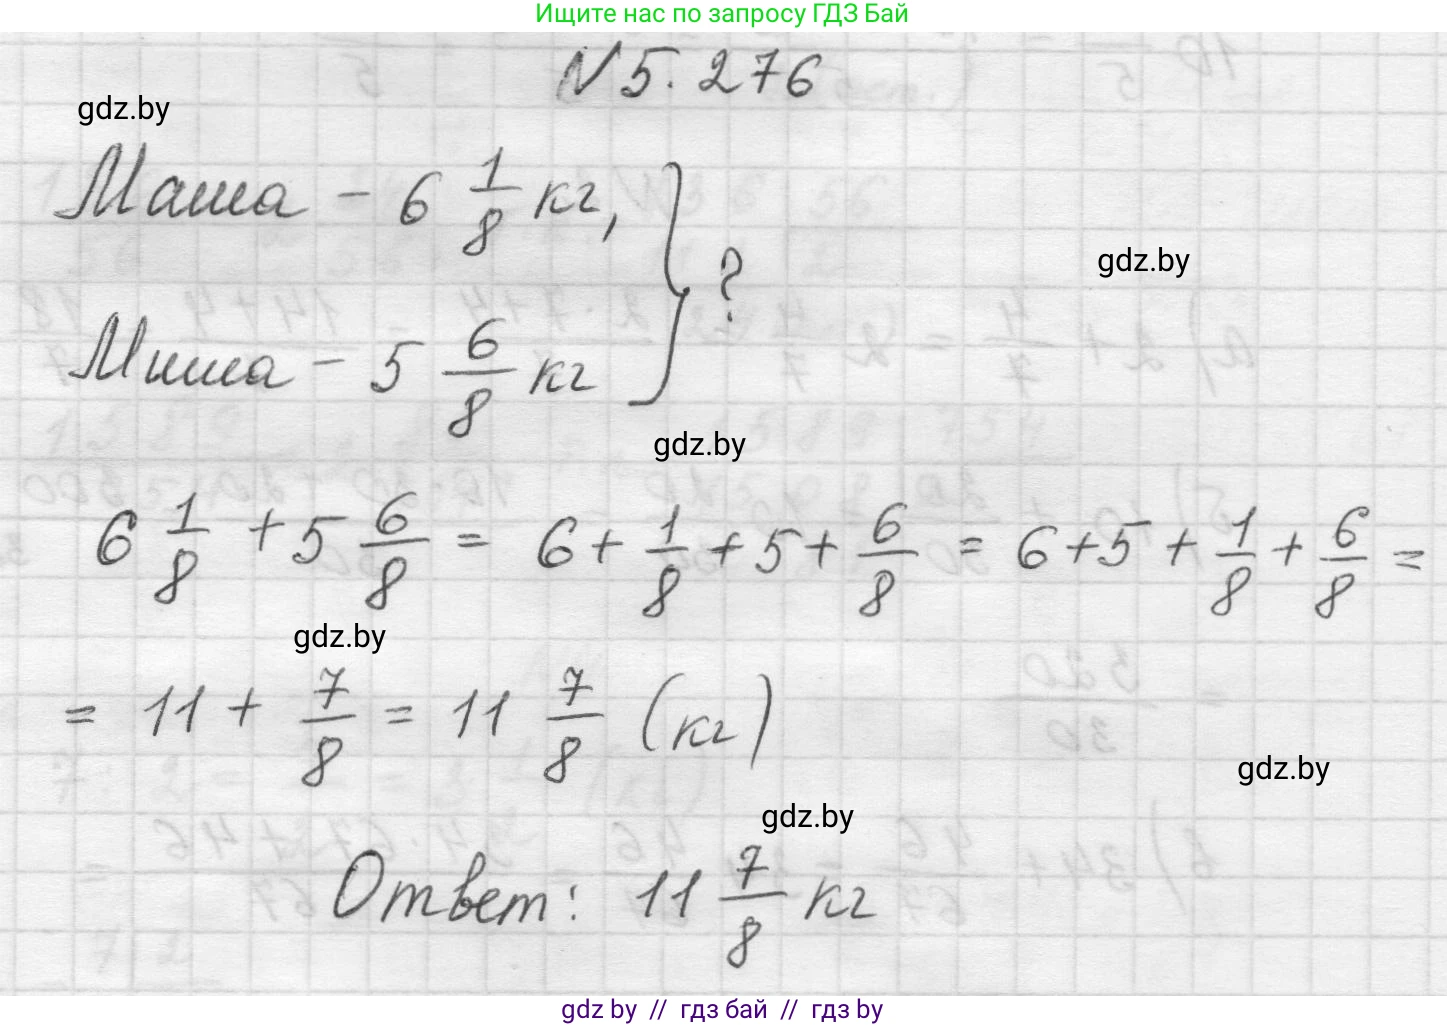 Ищите нас по запросу ГДЗ Бай
N 5.276
gdz.by
Маша - 6 1/8 кг,
gdz.by
} ?
Миша - 5 6/8 кг
gdz.by
6 1/8 + 5 6/8 = 6 + 1/8 + 5 + 6/8 = 6 + 5 + 1/8 + 6/8 =
gdz.by
= 11 + 7/8 = 11 7/8 (кг)
gdz.by
gdz.by
Ответ: 11 7/8 кг
gdz.by // гдз бай // гдз by